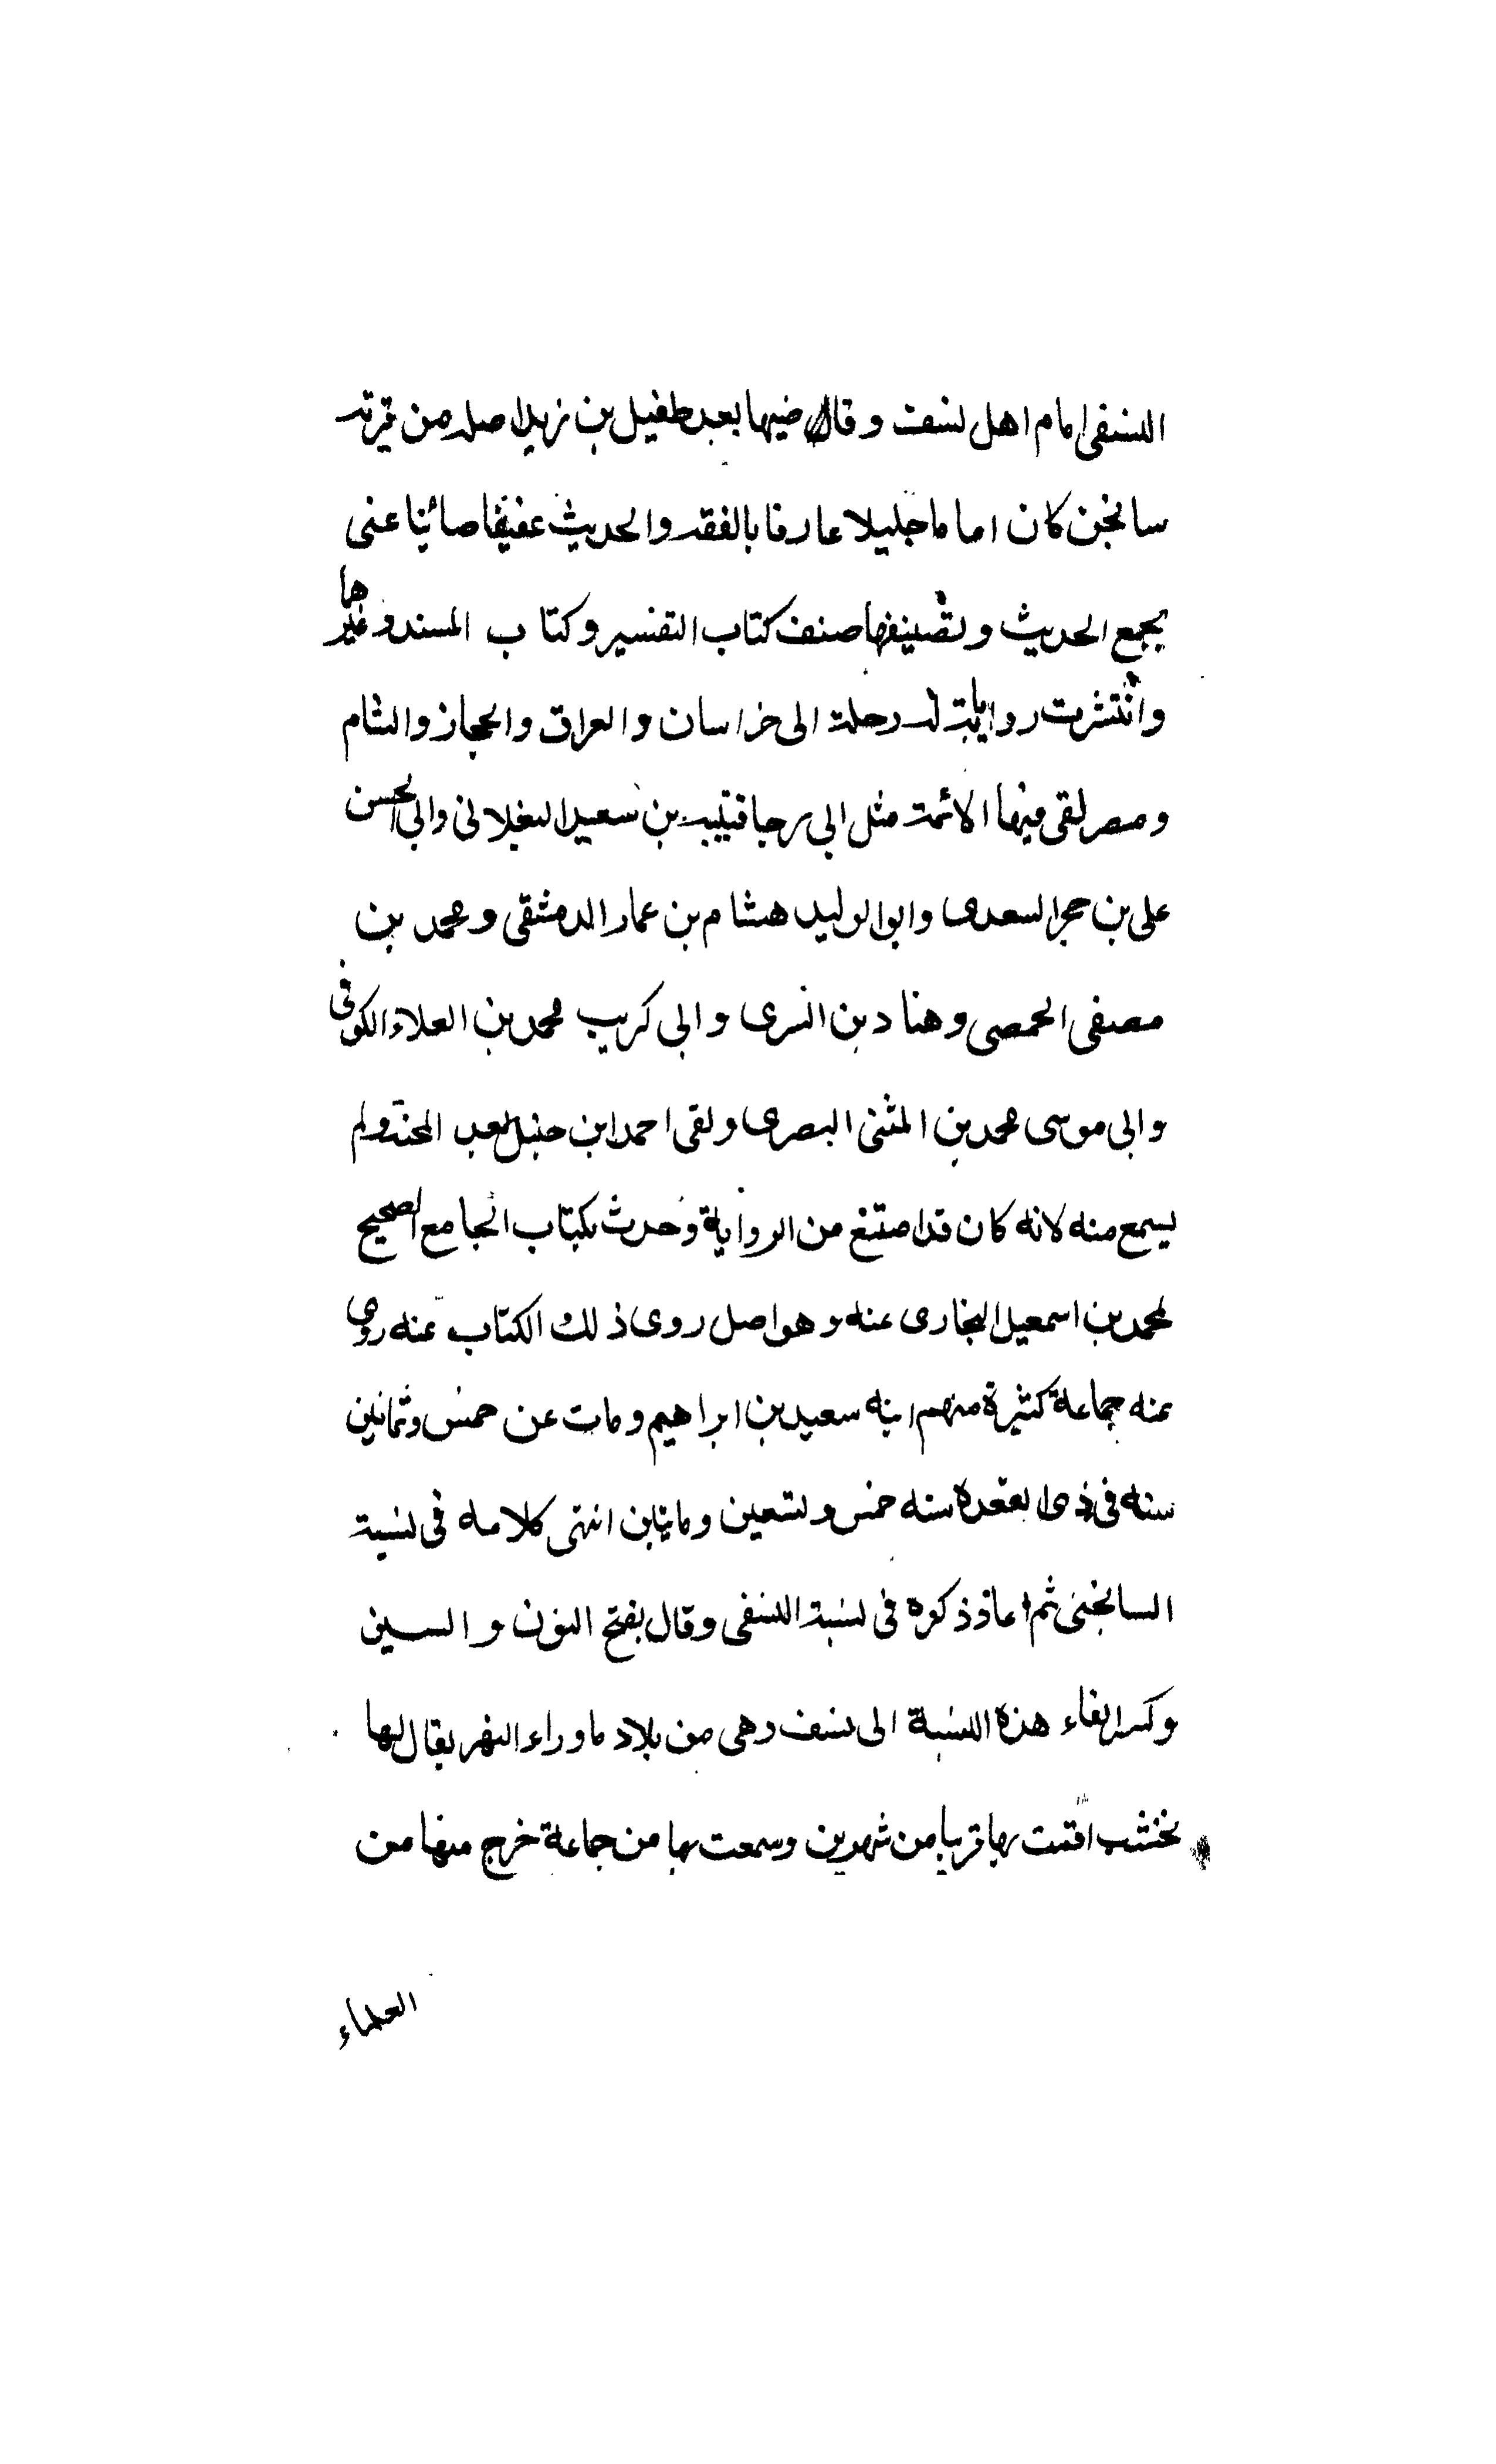 النسفى امام اهل نسف وقاضيها بعد طفيل بن زيد اصله من قرية
سانجن كان اماما جليلا عارفا بالفقه والحديث عفيفا صائنا عنى
بجمع الحديث وتصنيفها صنف كتاب التفسير وكتاب المسند وغيرهما
وانتشرت رواياته له رحلة الى خراسان والعراق والحجاز والشام
ومصر لقى فيها الائمة مثل ابى رجا قتيبه بن سعيد البغلانى وابى الحسن
على بن حجر السعدى وابو الوليد هشام بن عمار الدمشقى ومحمد بن
مصفى الحمصى وهناد بن السرى وابى كريب محمد بن العلاء الكوفى
وابى موسى محمد بن المثنى البصرى ولقى احمد ابن حنبل بعد المحنة ولم
يسمع منه لانه كان قد امتنع من الرواية وحدث بكتاب الجامع الصحيح
لمحمد بن اسمعيل البخارى عنه وهو اصل روى ذلك الكتاب عنه روى
عنه جماعة كثيرة منهم ابنه سعيد بن ابراهيم ومات عن خمس وثمانين
سنه فى ذى القعده سنه خمس وتسعين ومايتين انتهى كلامه فى نسبة
السانجنى ثم اعاد ذكره فى نسبة النسفى وقال بفتح النون والسين
وكسر الفاء هذه النسبة الى نسف وهى من بلاد ماوراء النهر يقال لها
نخشب اقمت بها قريبا من شهرين وسمعت بها من جماعة خرج منها من
العلماء